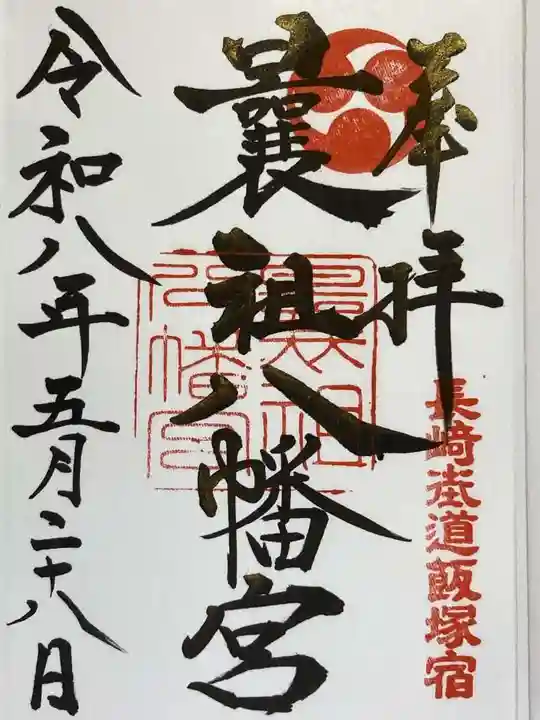 奉拝
長崎街道飯塚宿
曩祖八幡宮
曩祖八幡宮
令和八年五月二十八日